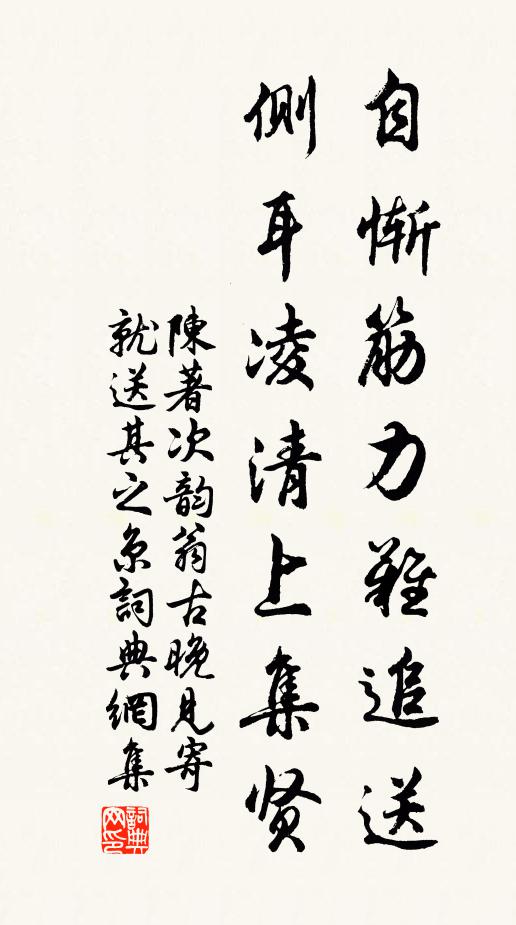 自惭筋力难追送
侧耳凌清上集贤
陳著次韵翁古晚見寄
就送其之京詞典網集
詞典網印